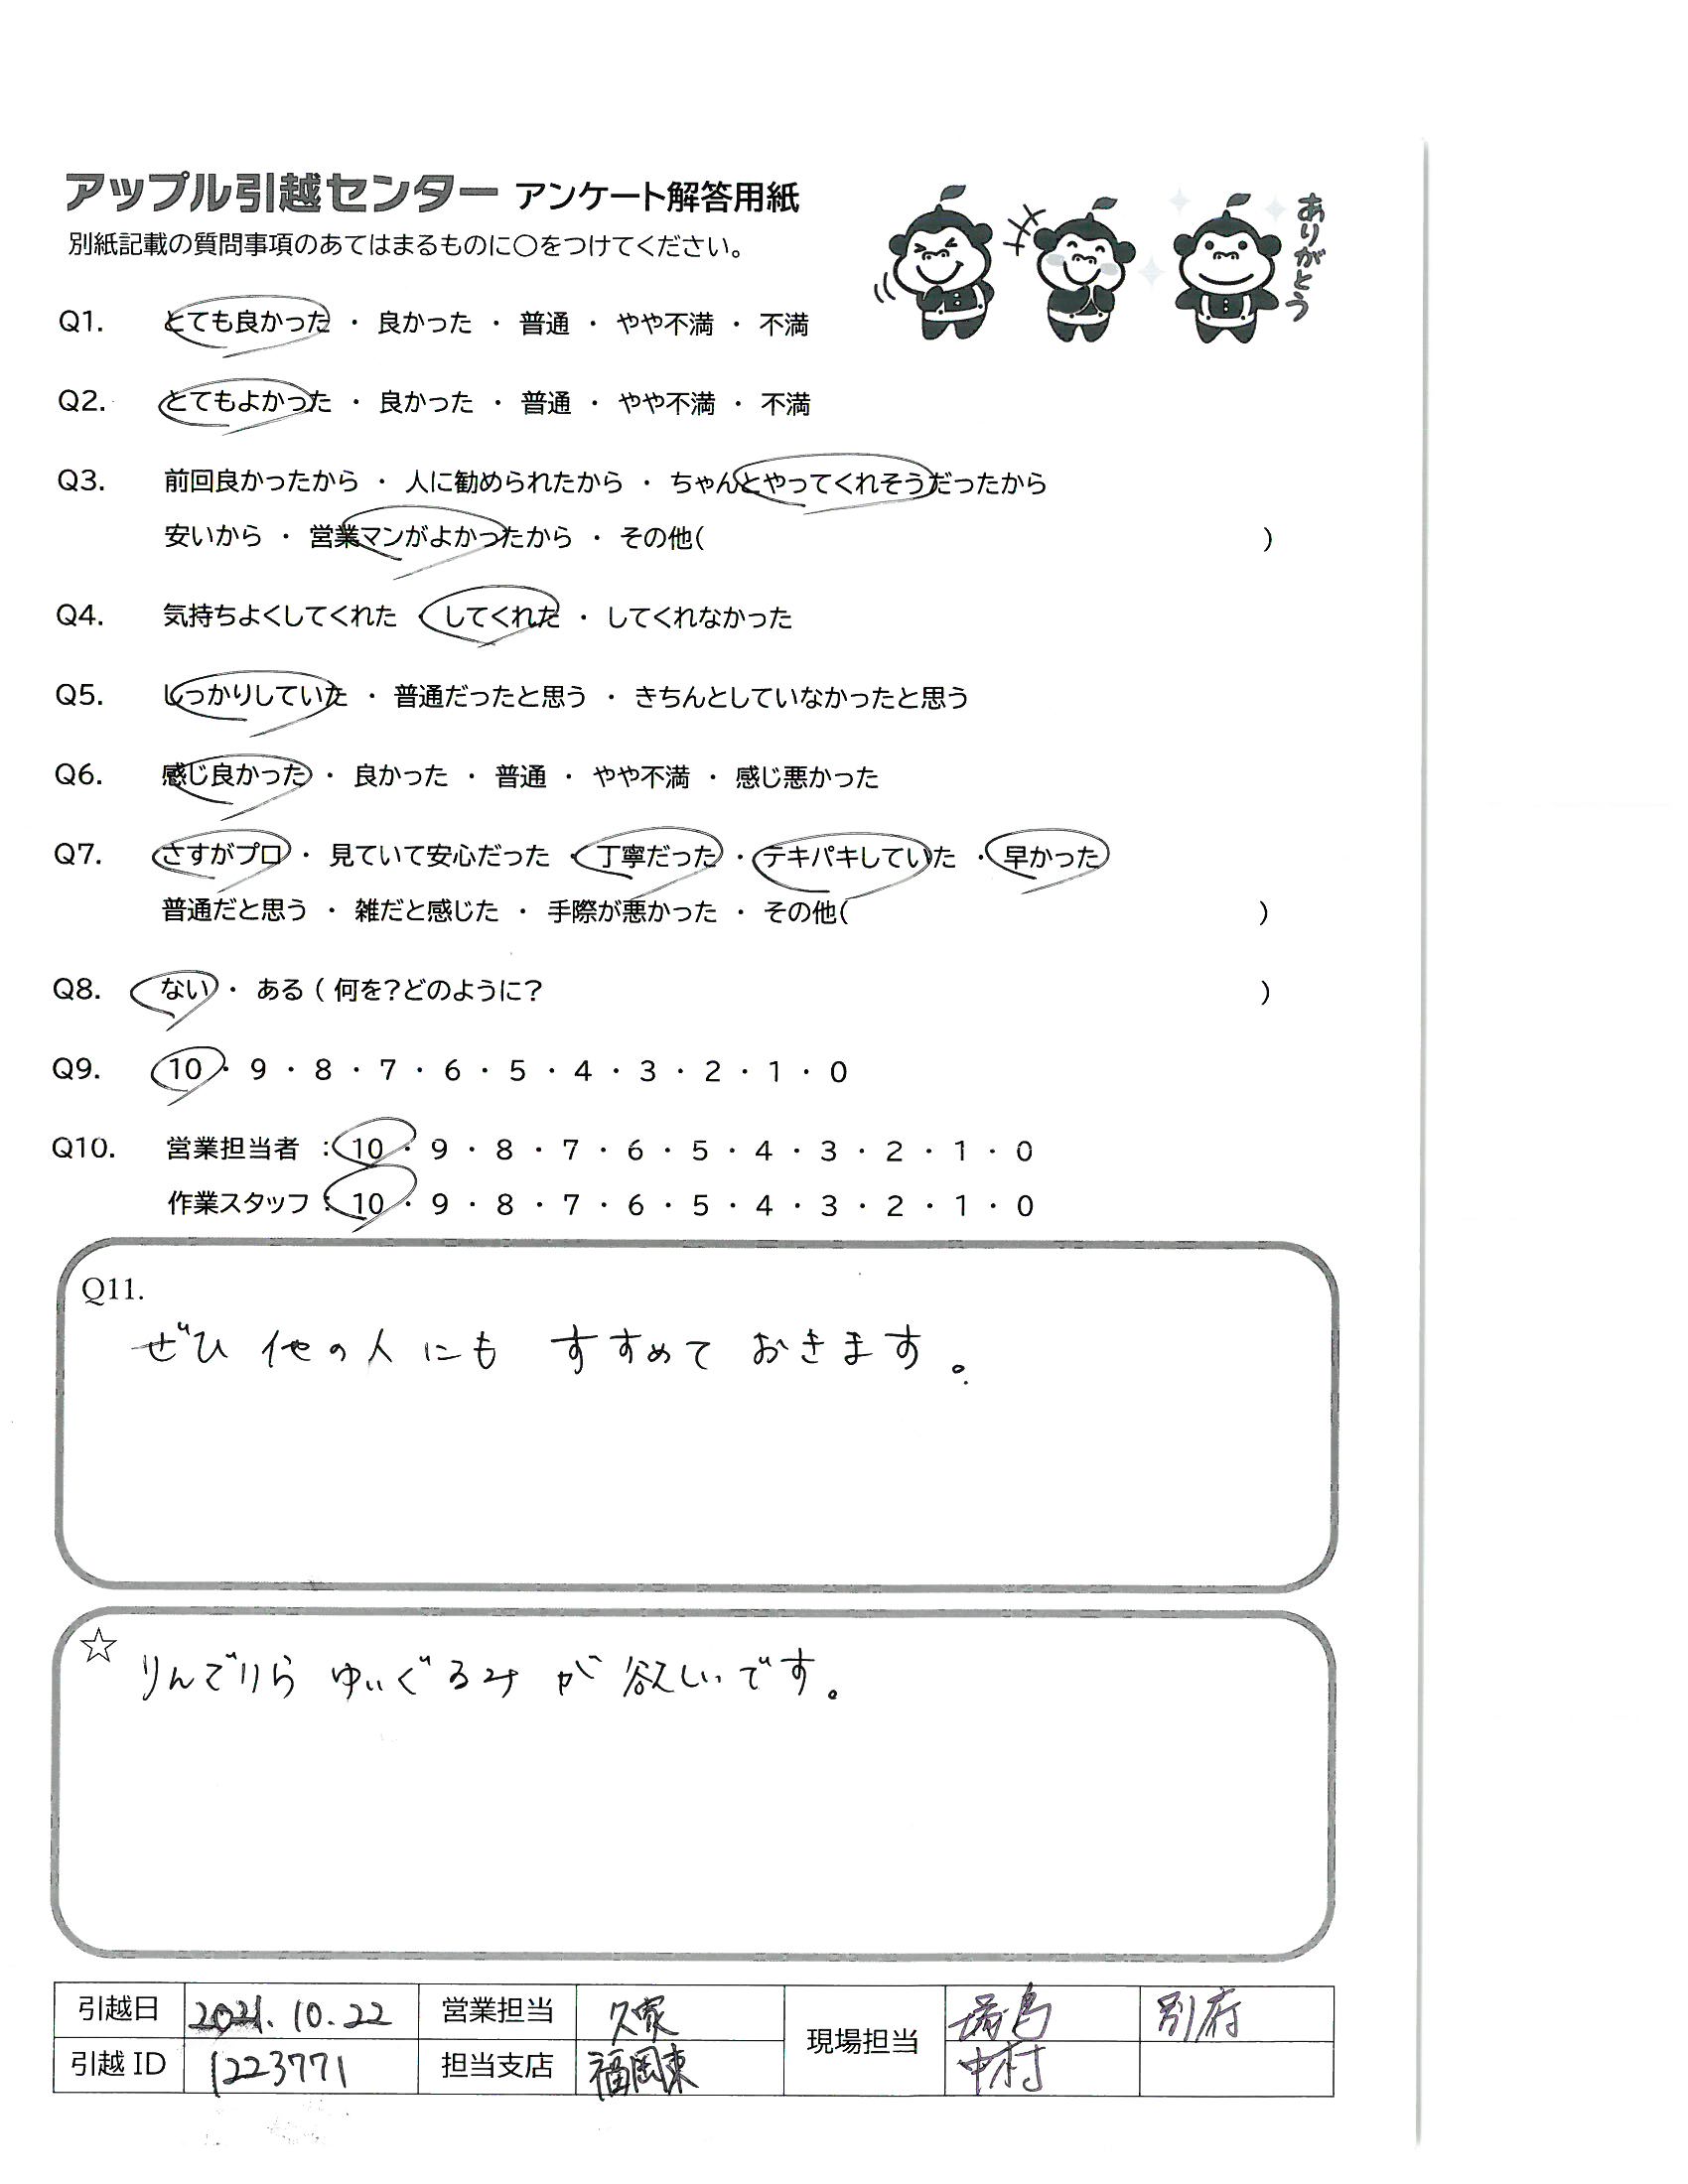 アップル引越センター アンケート解答用紙
別紙記載の質問事項のあてはまるものに〇をつけてください。
ありがとう
Q1. とても良かった ・ 良かった ・ 普通 ・ やや不満 ・ 不満
Q2. とてもよかった ・ 良かった ・ 普通 ・ やや不満 ・ 不満
Q3. 前回良かったから ・ 人に勧められたから ・ ちゃんとやってくれそうだったから
安いから ・ 営業マンがよかったから ・ その他( )
Q4. 気持ちよくしてくれた ・ してくれた ・ してくれなかった
Q5. しっかりしていた ・ 普通だったと思う ・ きちんとしていなかったと思う
Q6. 感じ良かった ・ 良かった ・ 普通 ・ やや不満 ・ 感じ悪かった
Q7. さすがプロ ・ 見ていて安心だった ・ 丁寧だった ・ テキパキしていた ・ 早かった
普通だと思う ・ 雑だと感じた ・ 手際が悪かった ・ その他( )
Q8. ない ・ ある ( 何を?どのように? )
Q9. 10 ・ 9 ・ 8 ・ 7 ・ 6 ・ 5 ・ 4 ・ 3 ・ 2 ・ 1 ・ 0
Q10. 営業担当者 : 10 ・ 9 ・ 8 ・ 7 ・ 6 ・ 5 ・ 4 ・ 3 ・ 2 ・ 1 ・ 0
作業スタッフ : 10 ・ 9 ・ 8 ・ 7 ・ 6 ・ 5 ・ 4 ・ 3 ・ 2 ・ 1 ・ 0
Q11.
ぜひ 他の人にも すすめて おきます。
☆ りんごりら ぬいぐるみ が 欲しいです。
引越日 2021.10.22 営業担当 久家 現場担当 別府
引越 ID 1223771 担当支店 福岡東 中村